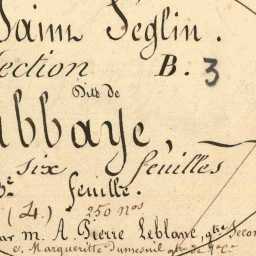 Saint Séglin.
Section B. 3
Dite de
abbaye
six feuilles
3e feuille.
(4.) 250 nos
par m. A. Pierre Leblanc, gtre Secon
e. Margueritte Dumesnil